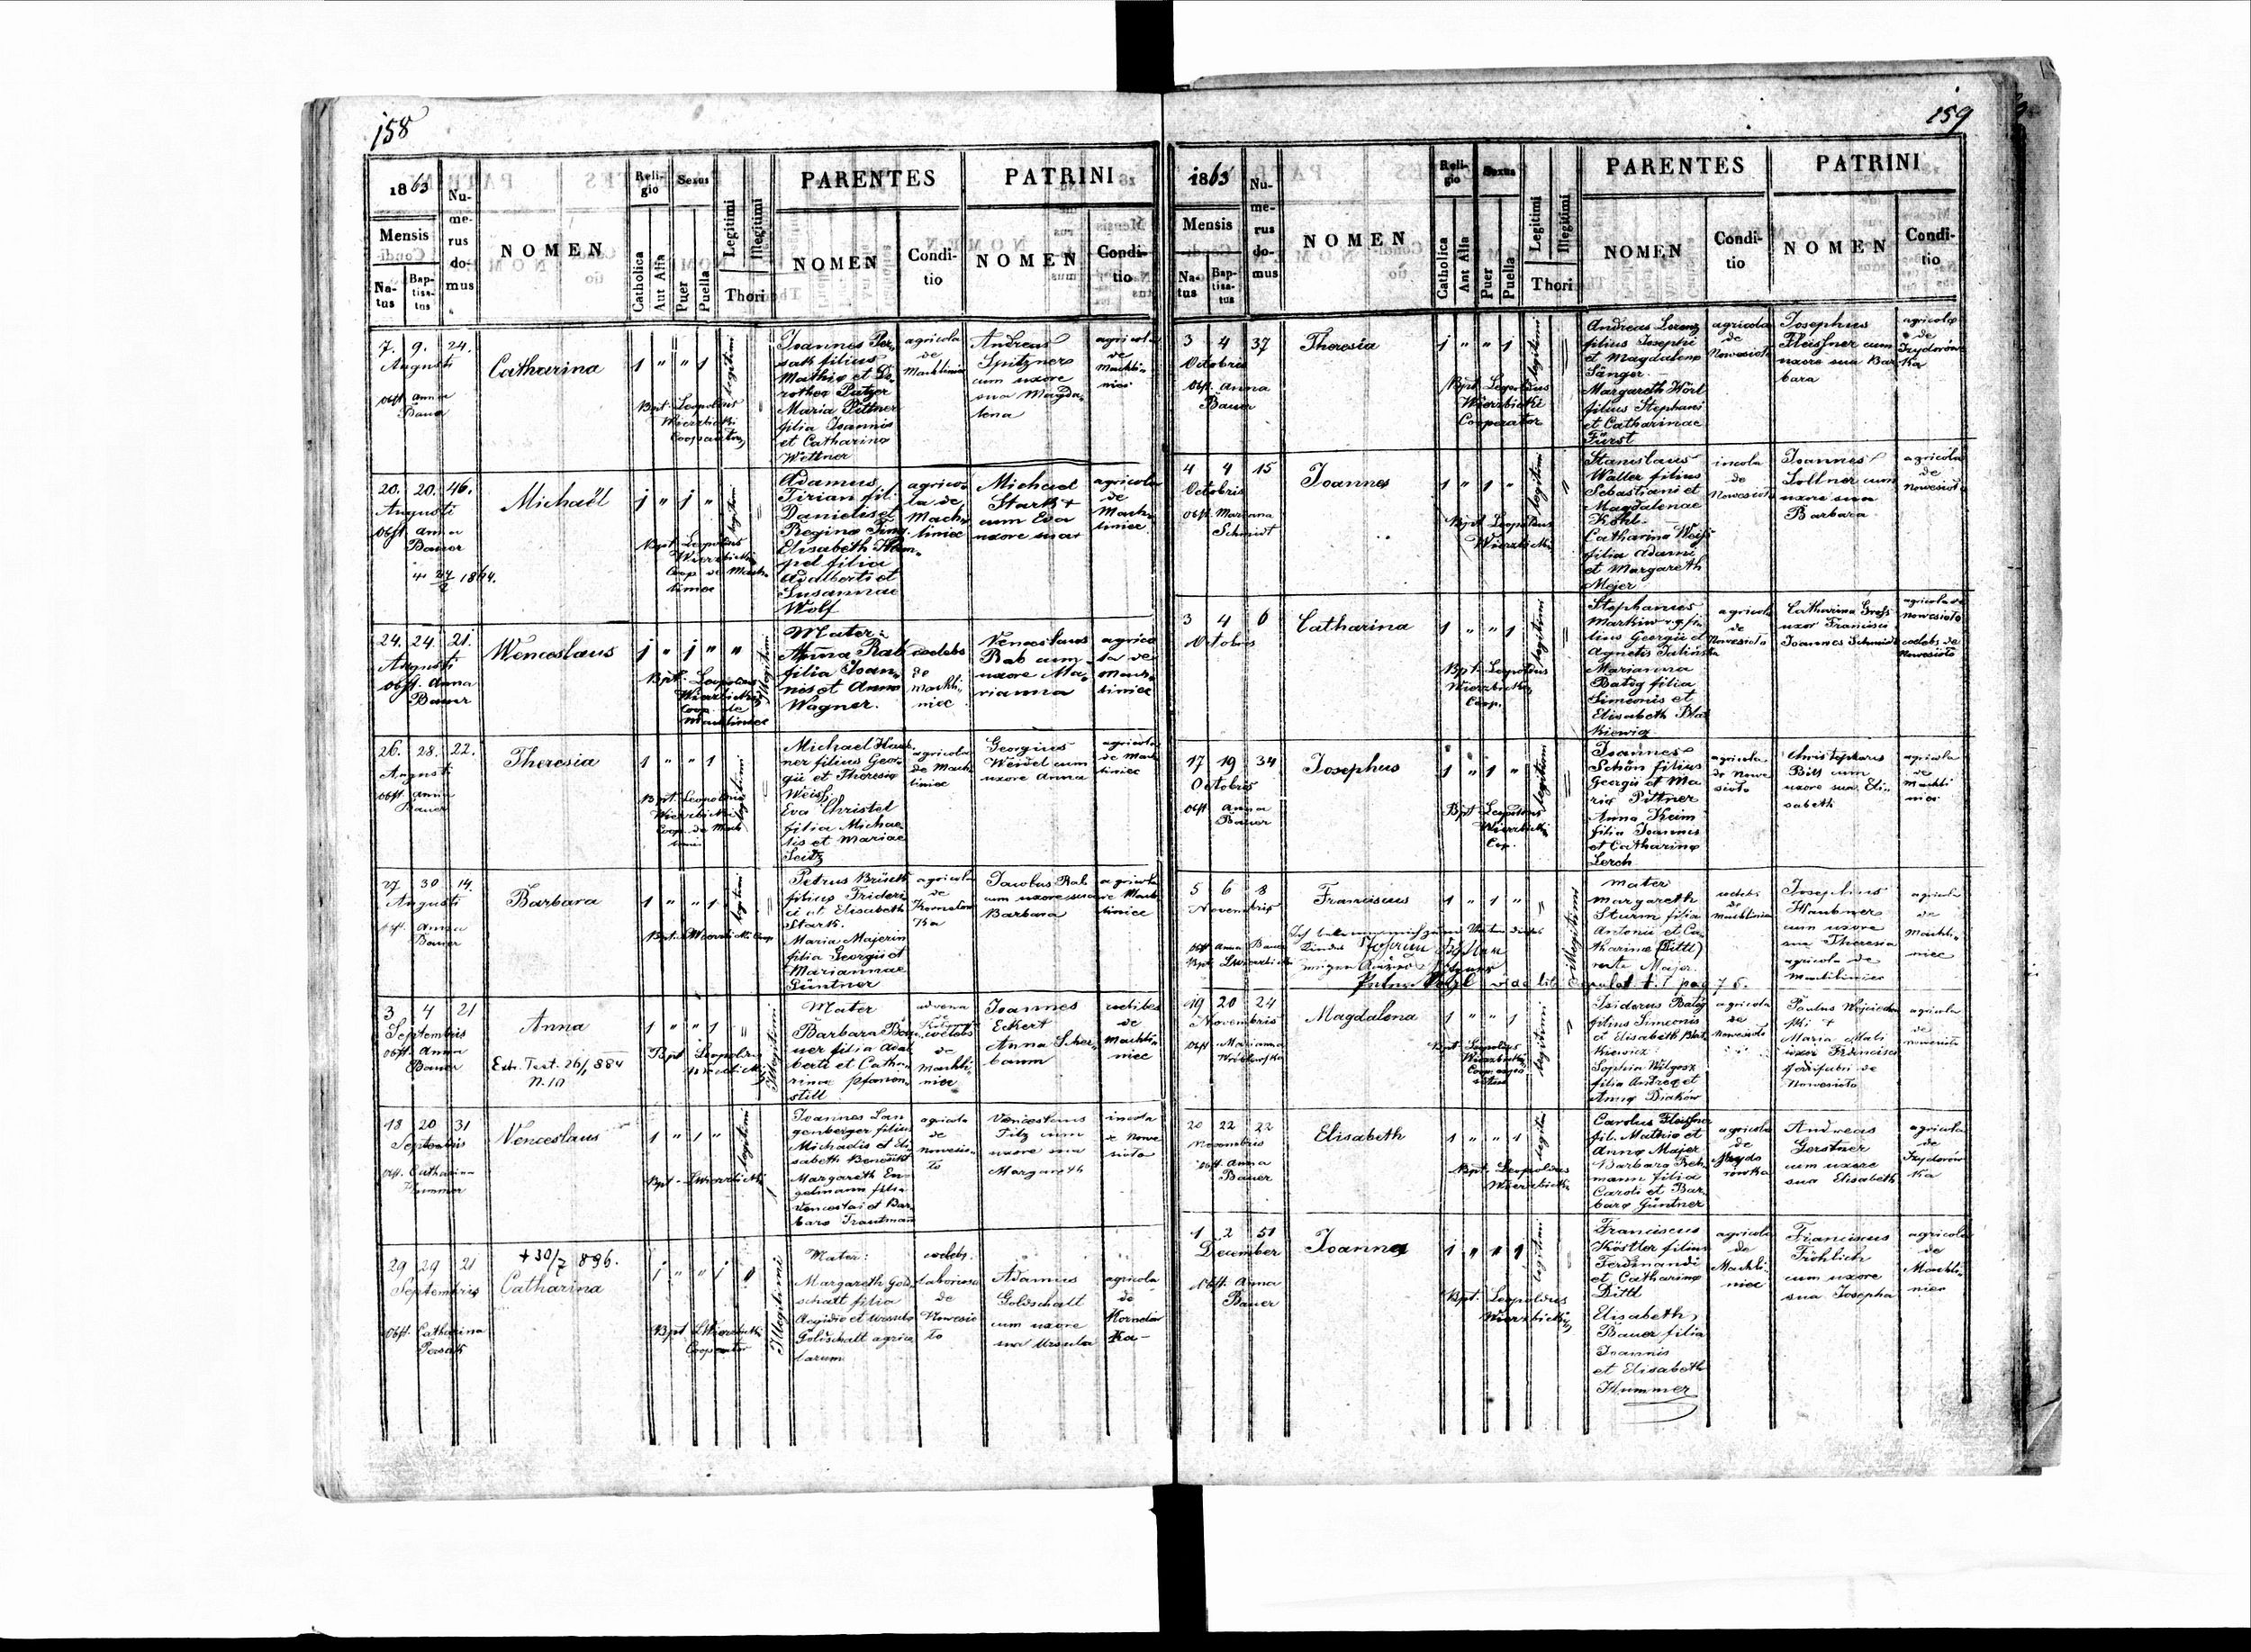 158
1863
Mensis
Natus
Baptisatus
Numerus domus
NOMEN
Religio
Catholica
Aut Alia
Sexus
Puer
Puella
Legitimi
Illegitimi
Thori
PARENTES
NOMEN
Conditio
PATRINI
NOMEN
Conditio
7. 9. 24.
Augusti
Obst. Anna
Bauer
Catharina
1 " " 1
legitimi
Bpt. Leopoldus
Wierzbicki
Cooperator
Joannes
filius
Mathiæ et Do-
rothea Putzer
Maria Pittner
filia Joannis
et Catharina
Wettner
agricola
de
Machliniec
Andreas
Spitzner
cum uxore
sua Magda-
lena
agricola
de
Machli-
niec
20. 20. 46.
Augusti
Obst. Anna
Bauer
1864.
Michaël
1 " 1 "
legitimi
Bpt. Leopoldus
Wierzbicki
Coop. de Mach-
liniec
Adamus
Tirian fil.
Danielis et
Regina
Elisabeth Ham-
pel filia
Adalberti et
Susannae
Wolf
agrico-
la de
Mach-
liniec
Michael
Stark +
cum Eva
uxore sua
agricola
de
Mach-
liniec
24. 24. 21.
Augusti
Obst. Anna
Bauer
Wenceslaus
1 " 1 " "
Illegitimi
Bpt. Leopoldus
Wierzbicki
Coop. de
Machliniec
Mater:
Anna Rab
filia Joan-
nis et Anna
Wagner.
coelebs
de
Machli-
niec
Venceslaus
Rab cum
uxore Ma-
rianna
agrico-
la de
Mach-
liniec
26. 28. 22.
Augusti
Obst. Anna
Bauer
Theresia
1 " " 1
legitimi
Bpt. Leopoldus
Wierzbicki
Coop. de Mach-
liniec
Michael Haub-
ner filius Geor-
gii et Theresiæ
Weiss.
Eva Christel
filia Michae-
lis et Mariae
Seitz
agricola
de Mach-
liniec
Georgius
Weidel cum
uxore Anna
agricola
de Mach-
liniec
27 30 14.
Augusti
Obst. Anna
Bauer
Barbara
1 " " 1
legitimi
Bpt. LWierzbicki Coop
Petrus
filius Frideri-
ci et Elisabeth
Stark.
Maria Majerin
filia Georgii et
Mariannae
Güntner
agricola
de
Kornelow-
ka
Jacobus Rab
cum uxore sua
Barbara
agricola
de Mach-
liniec
3 4 21
Septembris
Obst. Anna
Bauer
Anna
Ext. Test. 26/1 884
N. 10
1 " " 1 "
Illegitimi
Bpt. Leopoldus
Wierzbicki
Mater
Barbara Bau-
uer filia Adal-
berti et Catha-
rina Pfanen-
still
advena
de
coelebs
de
Machli-
niec
Joannes
Eckert
Anna Scher-
baum
coelibes
de
Machli-
niec
18 20 31
Septembris
Obst. Catharina
Hummer
Venceslaus
1 " 1 "
legitimi
Bpt. LWierzbicki
Joannes Lan-
genberger filius
Michaelis et Eli-
sabeth Benedikt
Margareth En-
gelmann filia
Venceslai et Bar-
bara Trautmann
agricola
de
Nowesio-
ło
Venceslaus
Filz cum
uxore sua
Margareth
incola
de Nowe-
sioło
29 29 21
Septembris
Obst. Catharina
+ 30/7 896.
Catharina
1 " " 1 "
Illegitimi
Bpt. LWierzbicki
Cooperator
Mater:
Margareth Gold-
schalt filia
Aegidio et Ursula
Goldschalt agrico-
larum
coelebs
laboriosa
de
Nowesio-
ło
Adamus
Goldschalt
cum uxore
sua Ursula
agricola
de
Kornelow-
ka
159
1863
Mensis
Natus
Baptisatus
Numerus domus
NOMEN
Religio
Catholica
Aut Alia
Sexus
Puer
Puella
Legitimi
Illegitimi
Thori
PARENTES
NOMEN
Conditio
PATRINI
NOMEN
Conditio
3 4 37
Octobris
Obst. Anna
Bauer
Theresia
1 " " 1
legitimi
Bpt. Leopoldus
Wierzbicki
Cooperator
Andreas Lorenz
filius Josephi
et Magdalena
Sänger.
Margareth Hörl
filius Stephani
et Catharinae
Fürst
agricola
de
Nowesioło
Josephus
Fleissner cum
uxore sua Bar-
bara
agricola
de
Izydorów-
ka
4 4 15
Octobris
Obst. Marianna
Schmidt
Joannes
1 " 1 "
legitimi
Bpt. Leopoldus
Wierzbicki
Stanislaus
Walter filius
Sebastiani et
Magdalenae
Kohl.
Catharina Weiss
filia Adami
et Margareth
Mejer
incola
de
Nowesioło
Joannes
Sollner cum
uxore sua
Barbara
agricola
de
Nowesioło
3 4 6
Octobris
Catharina
1 " " 1
legitimi
Bpt. Leopoldus
Wierzbicki
Coop.
Stephanus
Markiw fi-
lius Georgii et
Agnetis
Marianna
Batóg filia
Simeonis et
Elisabeth Błaż-
kiewicz
agricola
de
Nowesioło
Catharina Gross
uxor Francisci
Joannes Schmidt
agricola de
Nowesioło
coelebs de
Nowesioło
17 19 34
Octobris
Obst. Anna
Bauer
Josephus
1 " 1 "
legitimi
Bpt. Leopoldus
Wierzbicki
Coop.
Joannes
Schön filius
Georgii et Ma-
riæ Pittner
Anna Keim
filia Joannis
et Catharina
Lerch
agricola
de Nowe-
sioło
Christophorus
Bill cum
uxore sua Eli-
sabeth
agricola
de
Machli-
niec
5 6 8
Novembris
Obst. Anna Bauer
Bpt. LWierzbicki
Franciscus
1 " 1 "
Illegitimi
vide lib. copulat. t. 1 pag 76.
Mater
Margareth
Sturm filia
Antonii et Ca-
tharina (Dittl)
nata Majer
coelebs
de
Machliniec
Josephus
Haubner
cum uxore
sua Theresia
agricola de
Machliniec
agricola
de
Machli-
niec
19 20 24
Novembris
Obst. Marianna
Magdalena
1 " " 1
legitimi
Bpt. Leopoldus
Wierzbicki
Isiderus Batóg
filius Simeonis
et Elisabeth Błaż-
kiewicz
Sophia Wilgosz
filia Andreæ et
Anna Diaków
agricola
de
Nowesioło
Paulus Wojciechow-
ski +
Maria Mali
uxor Francisci
de
Nowesioło
agricola
de
Nowesioło
20 22 22
Novembris
Obst. Anna
Bauer
Elisabeth
1 " " 1
legitimi
Bpt. Leopoldus
Wierzbicki
Carolus Fleissner
fil. Mathiæ et
Anna Majer
Barbara
mann filia
Caroli et Bar-
bara Güntner
agricola
de
Izydo-
rówka
Andreas
Gerstner
cum uxore
sua Elisabeth
agricola
de
Izydorów-
ka
1 2 51
December
Obst. Anna
Bauer
Joanna
1 " " 1
legitimi
Bpt. Leopoldus
Wierzbicki
Franciscus
Köstler filius
Ferdinandi
et Catharina
Dittl
Elisabeth
Bauer filia
Joannis
et Elisabeth
Hummer
agricola
de
Machli-
niec
Franciscus
Fröhlich
cum uxore
sua Josepha
agricola
de
Machli-
niec